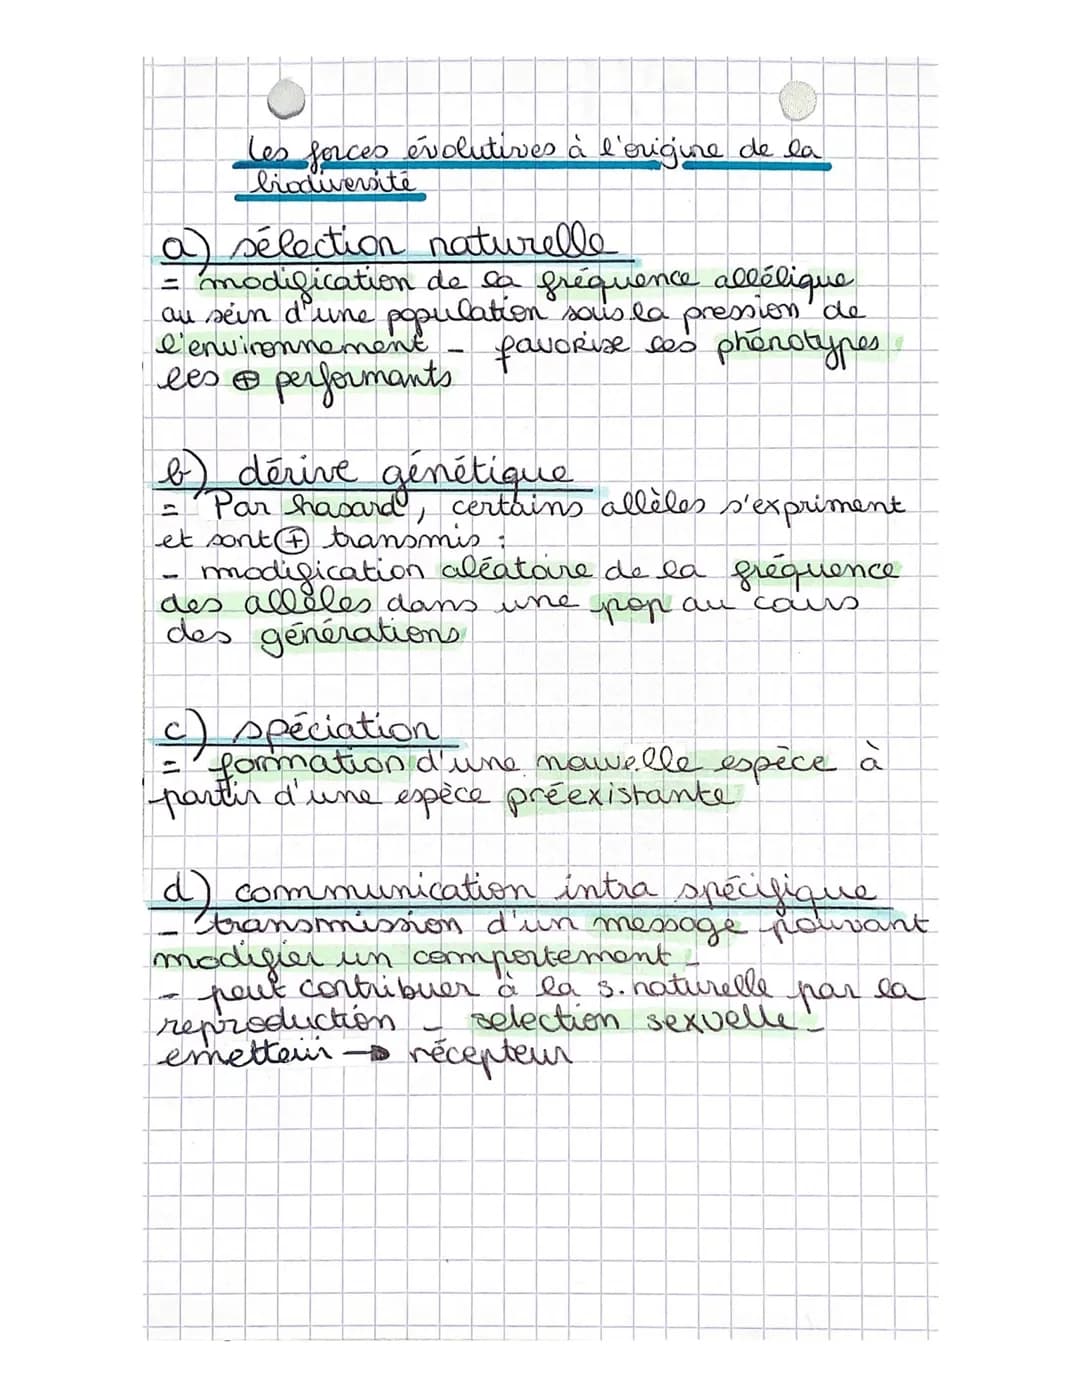 les forces évolutives à l'origine de la
biodiversité
a) sélection naturelle
= modification de la fréquence allélique
au séin d'une population sous la pression de
l'environnement - favorise les phénotypes
les ⊕ performants
b) dérive génétique
= Par hasard, certains allèles s'expriment
et sont ⊕ transmis :
- modification aléatoire de la fréquence
des allèles dans une pop au cours
des générations
c) spéciation
= formation d'une nouvelle espèce à
partir d'une espèce préexistante
d) communication intra spécifique
- transmission d'un message pouvant
modifier un comportement -
- peut contribuer à la s. naturelle par la
reproduction - selection sexuelle -
emetteur → récepteur